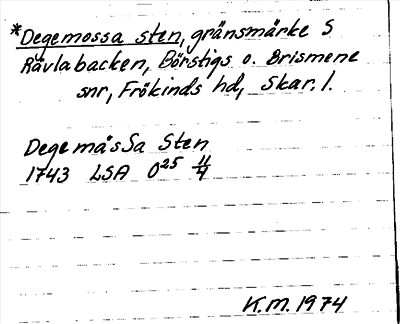 *Degemossa sten, gränsmärke S
Rävlabacken, Börstigs o. Brismene
snr, Frökinds hd, Skar. l.
Degemåssa Sten
1743 LSA O25 11/4
K.M. 1974